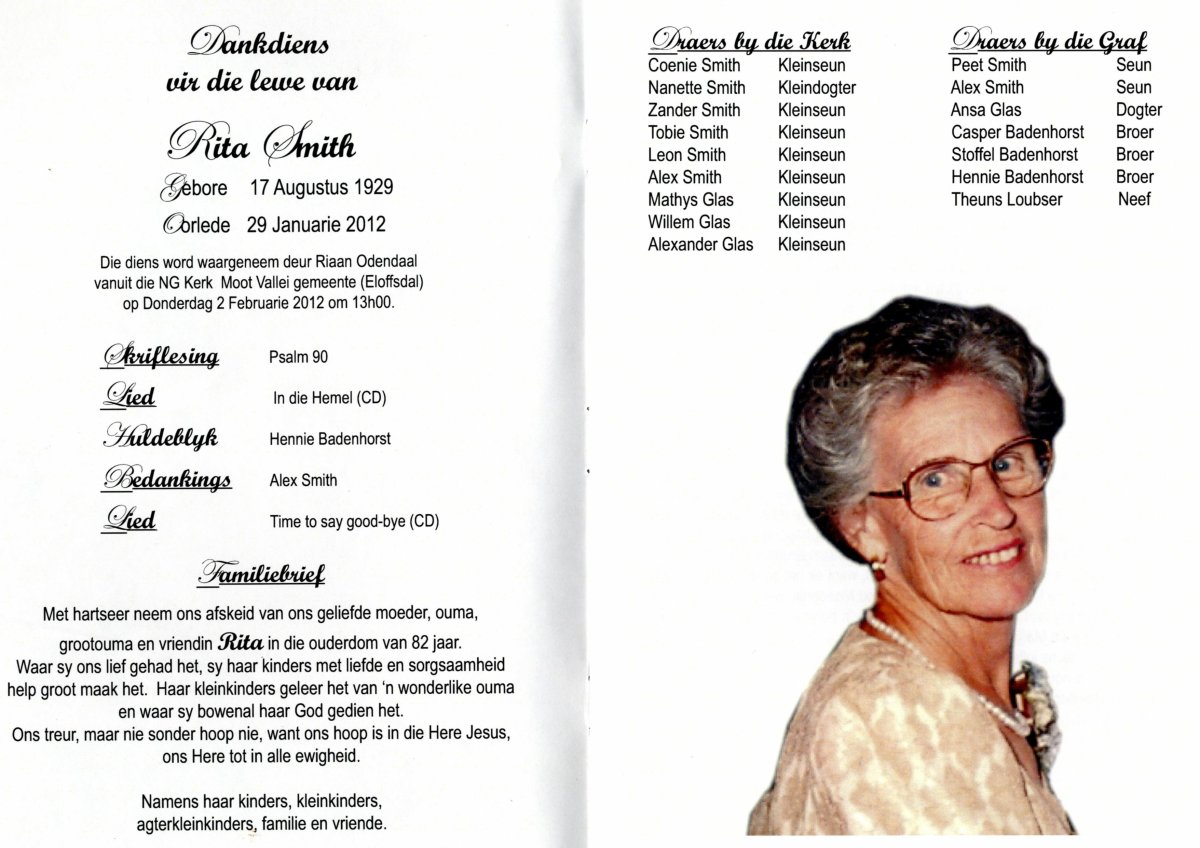 Dankdiens
vir die lewe van
Rita Smith
Gebore 17 Augustus 1929
Oorlede 29 Januarie 2012
Die diens word waargeneem deur Riaan Odendaal
vanuit die NG Kerk Moot Vallei gemeente (Eloffsdal)
op Donderdag 2 Februarie 2012 om 13h00.
Skriflesing Psalm 90
Lied In die Hemel (CD)
Huldeblyk Hennie Badenhorst
Bedankings Alex Smith
Lied Time to say good-bye (CD)
Familiebrief
Met hartseer neem ons afskeid van ons geliefde moeder, ouma,
grootouma en vriendin Rita in die ouderdom van 82 jaar.
Waar sy ons lief gehad het, sy haar kinders met liefde en sorgsaamheid
help groot maak het. Haar kleinkinders geleer het van ‘n wonderlike ouma
en waar sy bowenal haar God gedien het.
Ons treur, maar nie sonder hoop nie, want ons hoop is in die Here Jesus,
ons Here tot in alle ewigheid.
Namens haar kinders, kleinkinders,
agterkleinkinders, familie en vriende.
Draers by die Kerk
Coenie Smith Kleinseun
Nanette Smith Kleindogter
Zander Smith Kleinseun
Tobie Smith Kleinseun
Leon Smith Kleinseun
Alex Smith Kleinseun
Mathys Glas Kleinseun
Willem Glas Kleinseun
Alexander Glas Kleinseun
Draers by die Graf
Peet Smith Seun
Alex Smith Seun
Ansa Glas Dogter
Casper Badenhorst Broer
Stoffel Badenhorst Broer
Hennie Badenhorst Broer
Theuns Loubser Neef